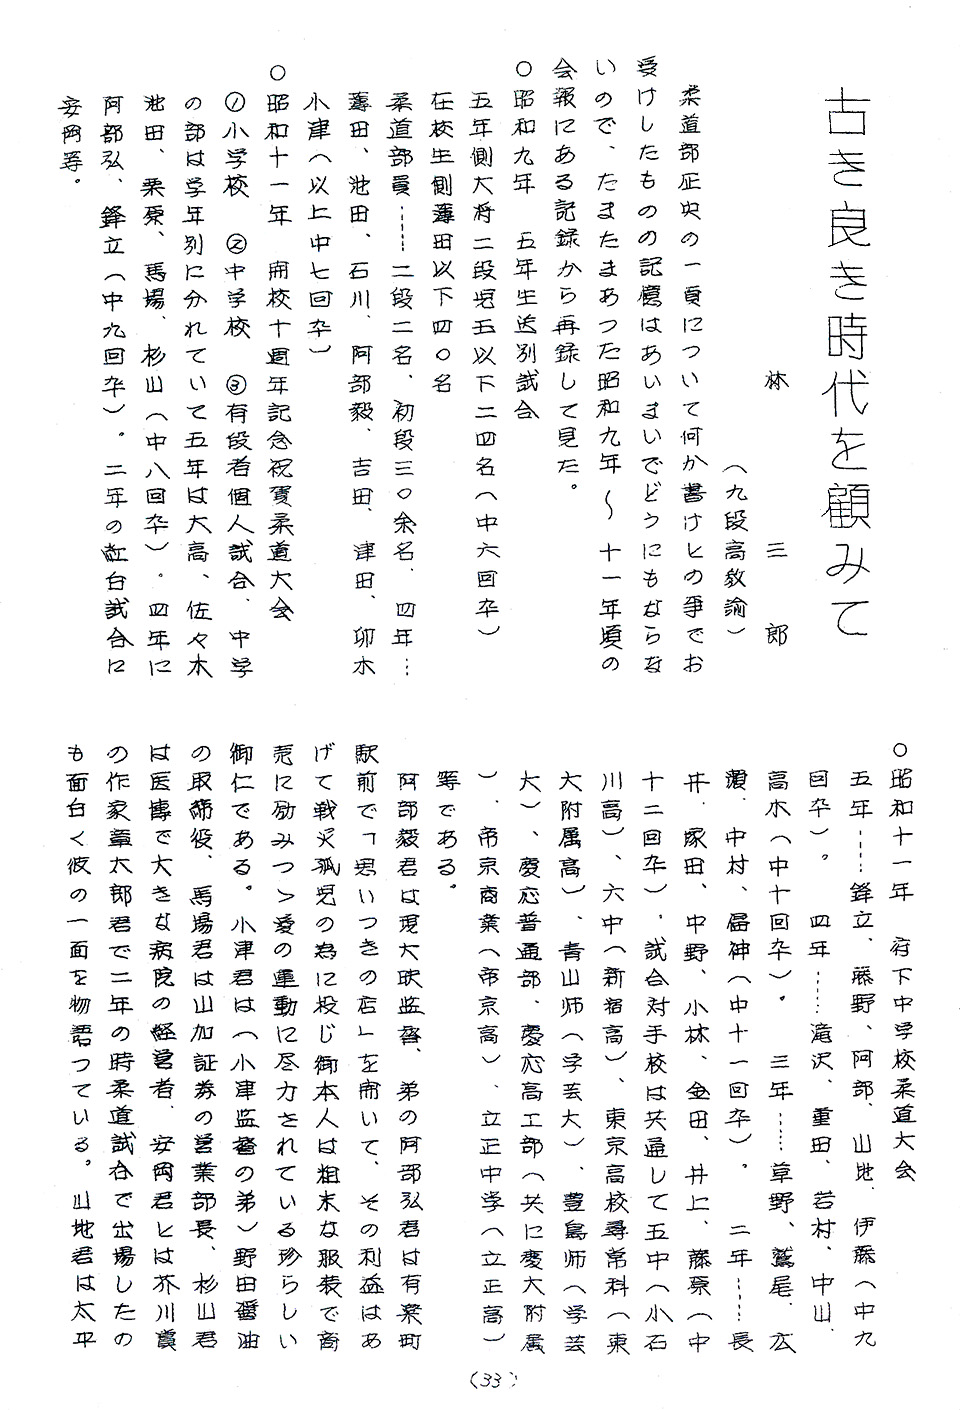 古き良き時代を顧みて
林三郎
（九段高教諭）
柔道部正史の一頁について何か書けとの事でお
受けしたものの記憶はあいまいでどうにもならな
いので、たまたまあつた昭和九年〜十一年頃の
会報にある記録から再録して見た。
○昭和九年　五年生送別試合
五年側大将二段児玉以下二四名（中六回卒）
在校生側薄田以下四〇名
柔道部員……二段二名、初段三〇余名、四年…
薄田、池田、石川、阿部毅、吉田、津田、卯木
小津（以上中七回卒）
○昭和十一年　開校十週年記念祝賀柔道大会
①小学校　②中学校　③有段者個人試合、中学
の部は学年別に分れていて五年は大高、佐々木
池田、栗原、馬場、杉山（中八回卒）。四年に
阿部弘、鋒立（中九回卒）。二年の紅白試合に
安岡等。
○昭和十一年　府下中学校柔道大会
五年……鋒立、藤野、阿部、山地、伊藤（中九
回卒）。四年……滝沢、重田、若村、中山、
高木（中十回卒）。三年……草野、鷲尾、広
瀬、中村、届神（中十一回卒）。二年……長
井、家田、中野、小林、金田、井上、藤原（中
十二回卒）、試合対手校は共通して五中（小石
川高）、六中（新宿高）、東京高校尋常科（東
大附属高）、青山師（学芸大）、豊島師（学芸
大）、慶応普通部、慶応高工部（共に慶大附属
）、帝京商業（帝京高）、立正中学（立正高）
等である。
阿部毅君は現大映監督、弟の阿部弘君は有楽町
駅前で「思いつきの店」を開いて、その利益はあ
げて戦災孤児の為に投じ御本人は粗末な服装で商
売に励みつゝ愛の運動に尽力されている珍らしい
御仁である。小津君は（小津監督の弟）野田醤油
の取締役、馬場君は山加証券の営業部長、杉山君
は医博で大きな病院の経営者、安岡君とは芥川賞
の作家章太郎君で二年の時柔道試合で出場したの
も面白く彼の一面を物語つている。山地君は太平
（33）